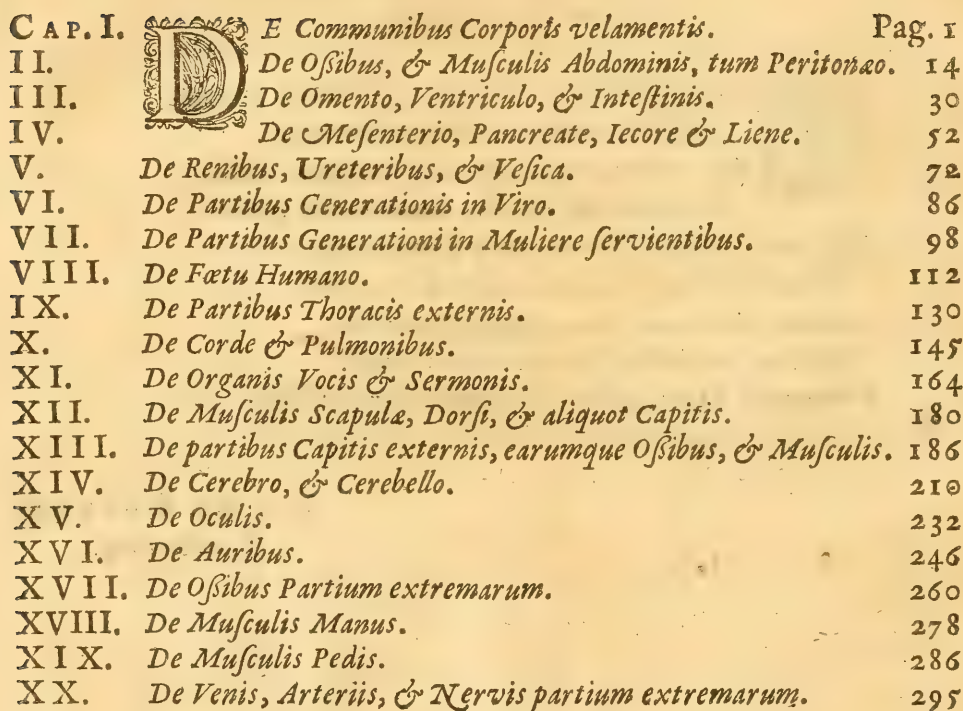 CAP. I. DE Communibus Corporis velamentis. Pag. 1
II. De Oſſibus, & Muſculis Abdominis, tum Peritonæo. 14
III. De Omento, Ventriculo, & Inteſtinis. 30
IV. De Meſenterio, Pancreate, Iecore & Liene. 52
V. De Renibus, Ureteribus, & Veſica. 72
VI. De Partibus Generationis in Viro. 86
VII. De Partibus Generationi in Muliere ſervientibus. 98
VIII. De Fœtu Humano. 112
IX. De Partibus Thoracis externis. 130
X. De Corde & Pulmonibus. 145
XI. De Organis Vocis & Sermonis. 164
XII. De Muſculis Scapulæ, Dorſi, & aliquot Capitis. 180
XIII. De partibus Capitis externis, earumque Oſſibus, & Muſculis. 186
XIV. De Cerebro, & Cerebello. 210
XV. De Oculis. 232
XVI. De Auribus. 246
XVII. De Oſſibus Partium extremarum. 260
XVIII. De Muſculis Manus. 278
XIX. De Muſculis Pedis. 286
XX. De Venis, Arteriis, & Nervis partium extremarum. 295